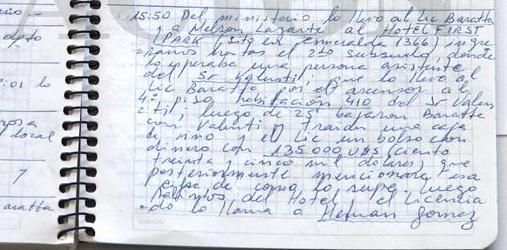 dpto
:01 lo
local
7
aratta
15:50. Del ministerio lo llevo al Lic Baratta
y a Nelson Lazarte al HOTEL FIRST
PARK sito en esmeralda 1366, ingre
=samos hasta el 2do Subsuelo, donde
lo esperaba una persona asistente
del Sr Valenti, que lo llevo al
Lic Baratta por el ascensor al
4º piso habitación 410 del Sr Valen
=ti, luego de 25 bajaron Baratta
con Valenti traian una caja
de vino el Lic un bolso con
dinero con 135.000 U$S (ciento
treinta y cinco mil dolares), que
posteriormente mencionara esa
cifra de como lo supe, luego
salimos del Hotel, el Licencia
=do lo llama a Hernan Gomez